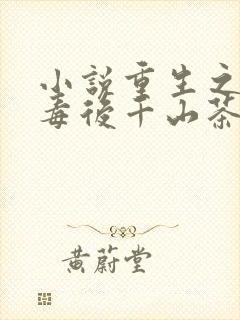 小說重生之
毒後千山茶
黃蔚堂